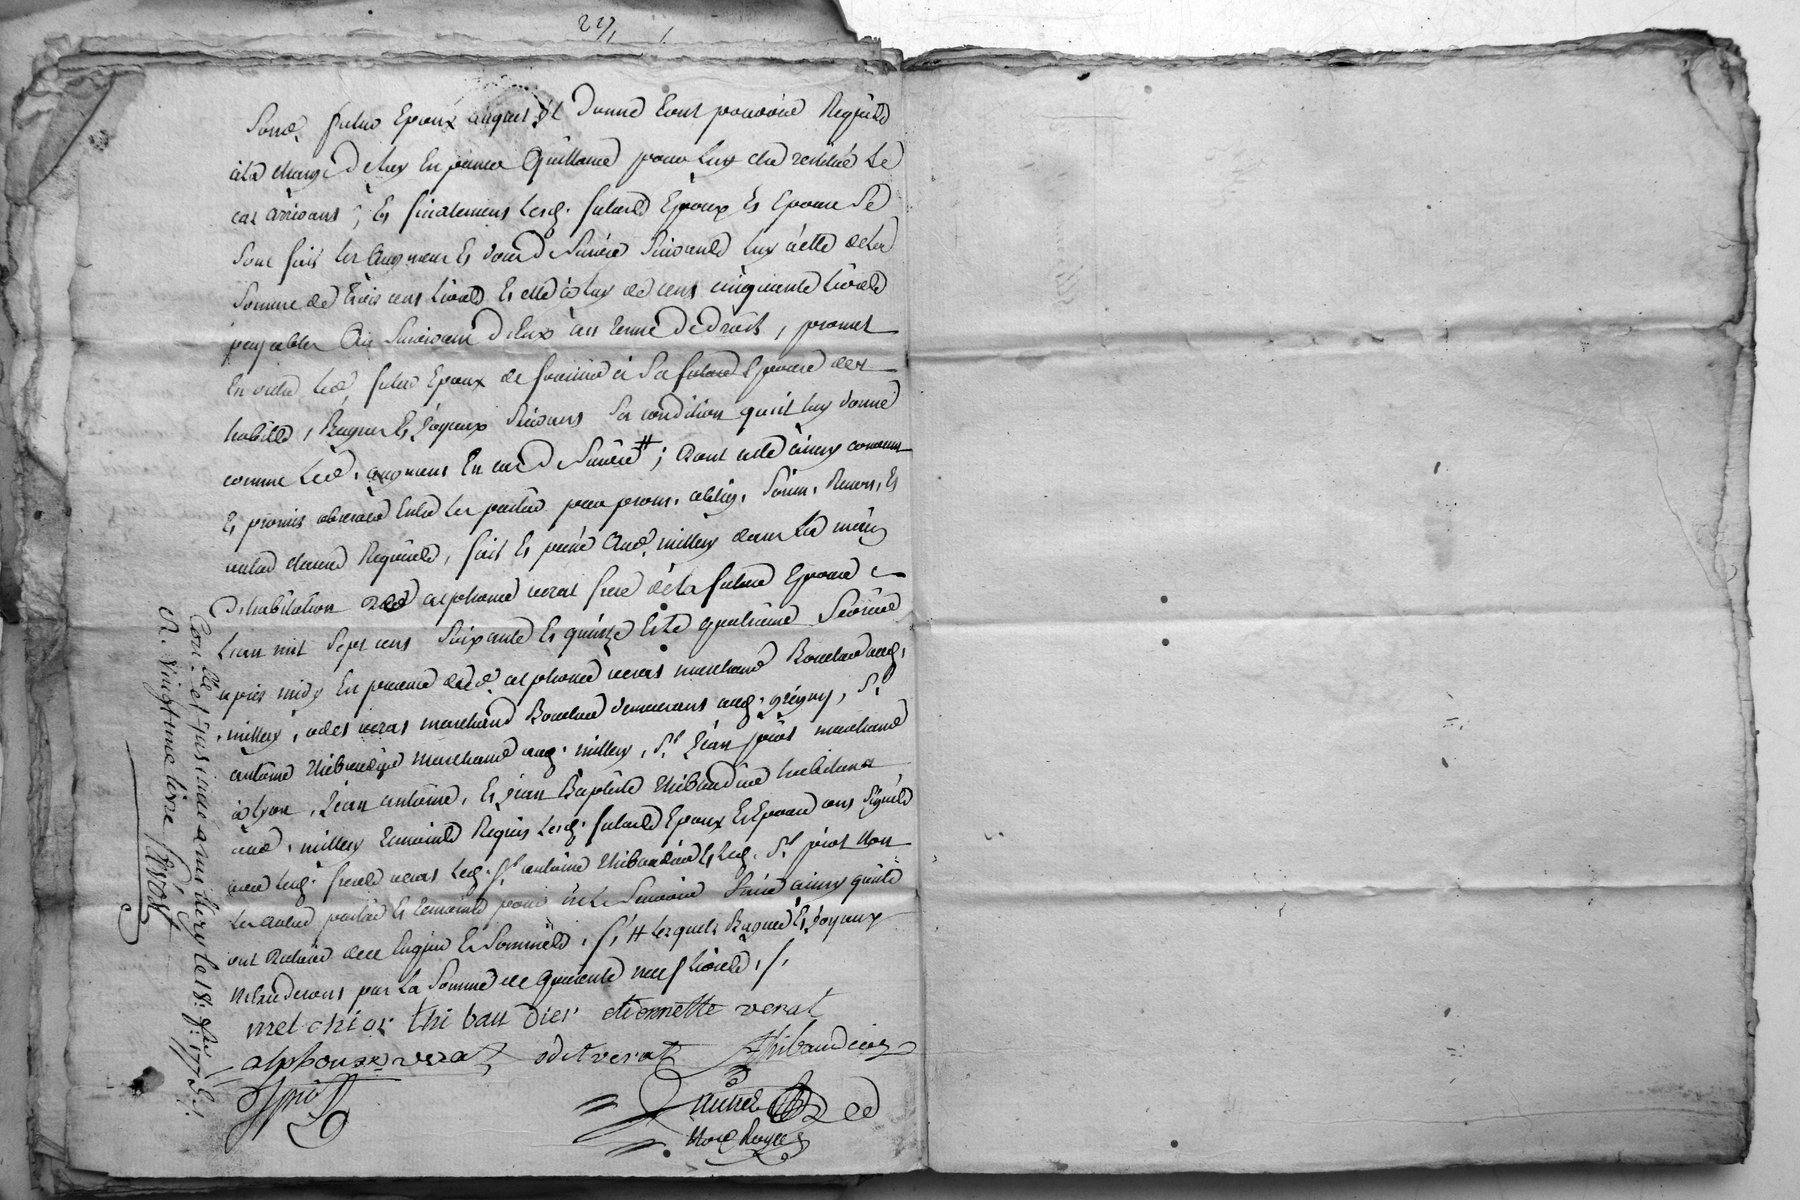 221
Sond. futur Epoux auquel Il donne tout pouvoir Requis
a la charge de luy En passer Quittance pour luy etre restitué Le
cas arrivant; Et finalement lesd. futurs Epoux Et Epouse Se
Sont fait les augment Et don de Survie Suivants luy à elle de la
Somme de trois cens livres Et elle à luy de cens cinquante livres
payables au Survivant d'Eux au terme de droit, promet
En outre led. futur Epoux de fournir à Sa future Epouse des
habills, Bagues Et Joyaux Suivans Sa condition qu'il luy donne
comme led. augment En cas de Survie #; Dont acte ainsy convenu
Et promis observer Entre les parties par prom. oblig. Soum. Renon. Et
autres clauses Requises, fait Et passé aud. millery dans la maison
d'habitation dud alphonse verat frere de la future Epouse
L'an mil Sept cens Soixante Et quinze Et le quatrieme Fevrier
après midy En presence dud. alphonse veras marchand Boucher aud.
millery, odet veras marchand Boucher demeurant aud. grigny, Sr.
antoine thibaudier marchand aud. millery, Sr. Jean piot marchand
à lyon, Jean antoine, Et Jean Baptiste thibaudier habitans
aud. millery temoins Requis Lesd. futurs Epoux Et Epouse ont Signés
avec lesd. freres veras led. Sr. antoine thibaudier Et led. Sr. piot Non
les autres parties Et temoins pour ne le Savoir faire ainsy qu'ils
ont declaré de ce Enquis Et Sommés. # lesquels Bagues Et Joyaux
reviendront par la Somme de quarante neuf livres.
melchior thi bau dier etiennette verat
alphonse verat odet verat Thibaudier
Jpiot
Nore Royal
Con.lé et insinué a millery le 18. fer 1775.
R. vingt une livre